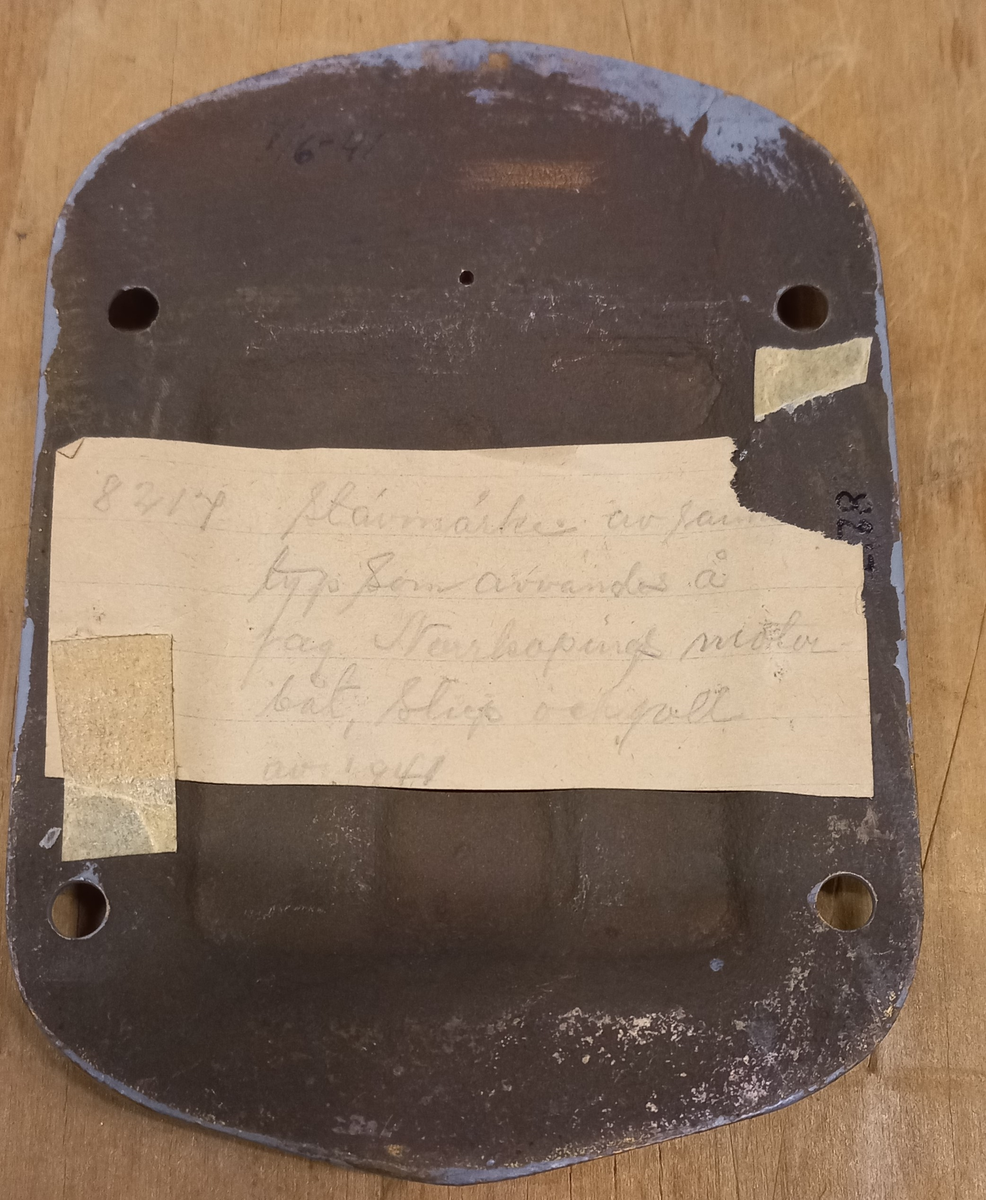 6-41
8217 Stävmärke av sam
typ som användes å
jag Norrköpings motor-
båt, Slup och
av 1941